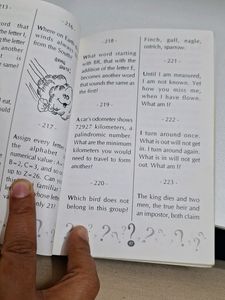 213 -
word that
the letter I,
letter I,
another
sound
same!
eat,
could
- 216 -
Where on Earth
winds always
from the South?
- 217 -
Assign every letter
the alphabet
numerical value: A=
B=2, C=3, and so
up to Z=26. Can you
familiar
whose
value
only 21?
- 218 -
What word starting
with BR, that with the
addition of the letter E,
becomes another word
that sounds the same as
the first?
- 219 -
A car's odometer shows
72927 kilometers, a
palindromic number.
What are the minimum
kilometers you would
need to travel to form
another?
- 220 -
Which bird does not
belong in this group?
Finch, gull, eagle,
ostrich, sparrow.
- 221 -
Until I am measured,
I am not known. Yet
how you miss me,
when I have flown.
What am I?
- 222 -
I turn around once.
What is out will not get
in. I turn around again.
What is in will not get
out. What am I?
- 223 -
The king dies and two
men, the true heir and
an impostor, both claim